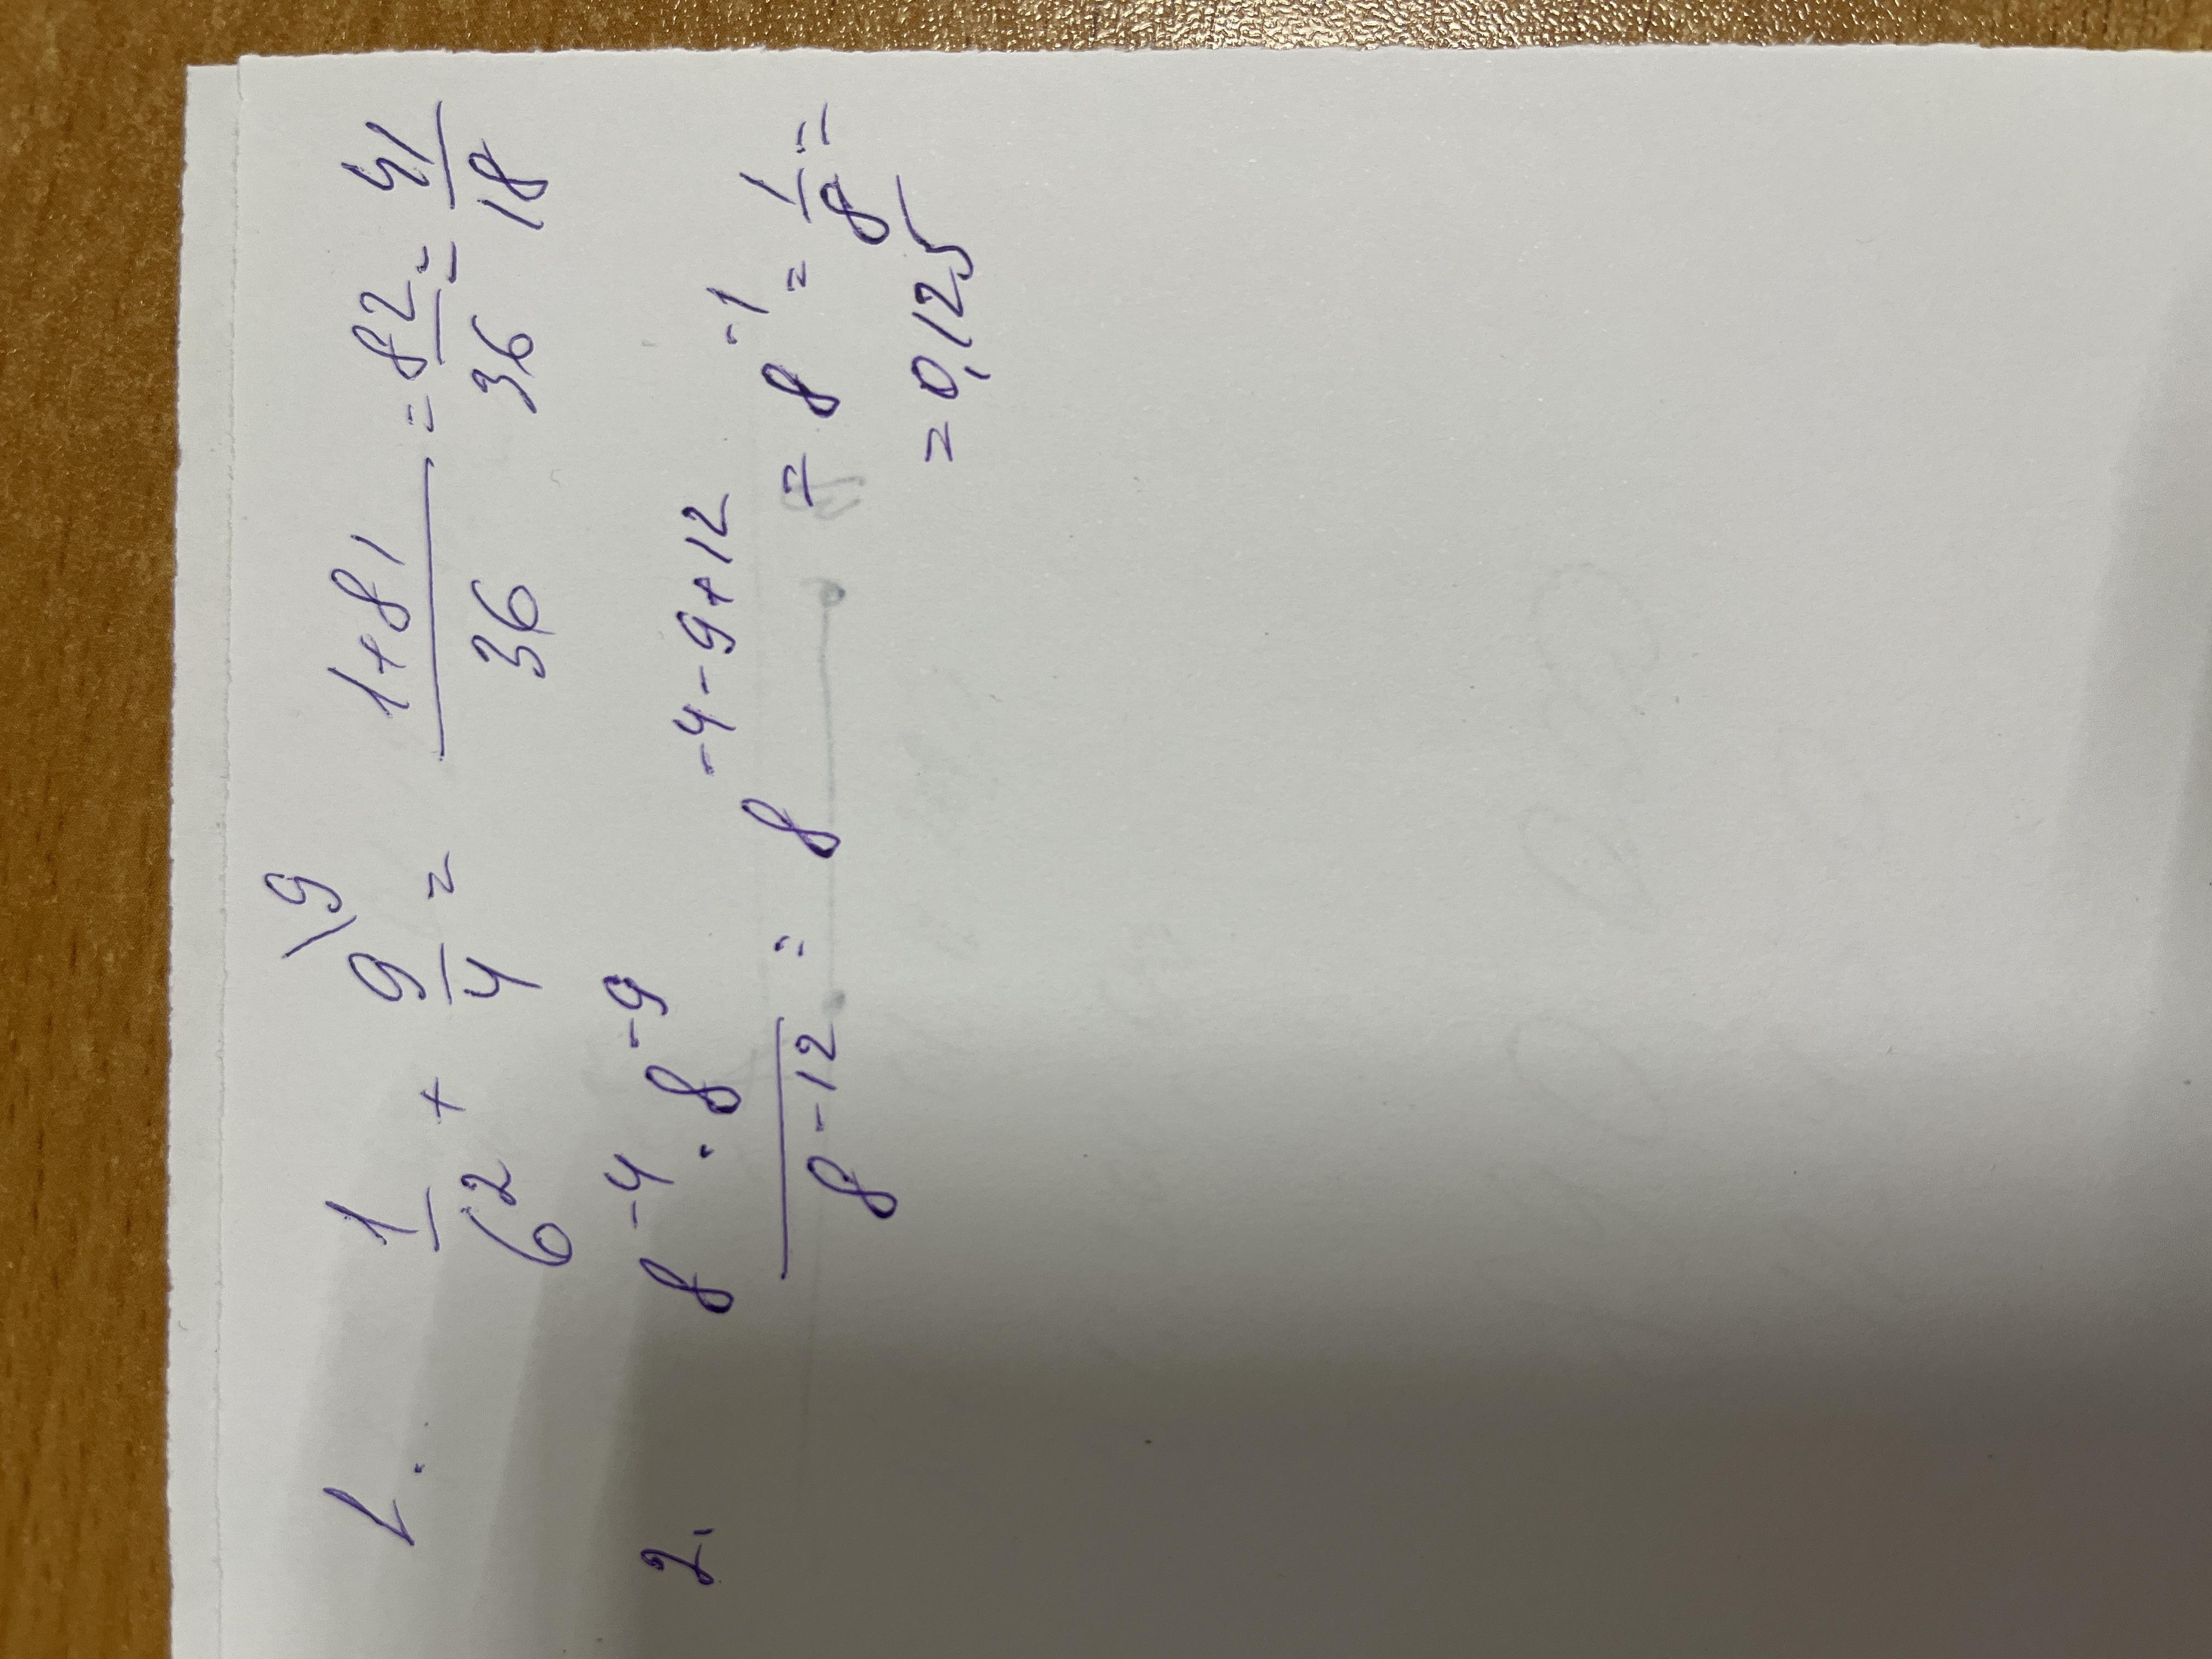 1. 1/6² + 9/4 \9 = (1+81)/36 = 82/36 = 41/18
2. (8⁻⁴ · 8⁻⁹)/8⁻¹² = 8⁻⁴⁻⁹⁺¹² = 8⁻¹ = 1/8 =
= 0,125